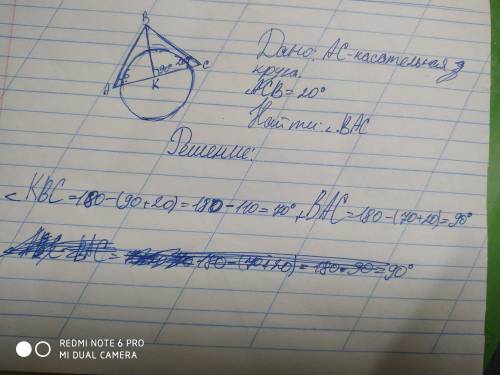 B
90° 20° C
A
K
Дано: AC-касательная
круга,
ACB=20°
Найти: ∠BAC
Решение:
∠KBC=180-(90+20)=180-110=70°, BAC=180-(70+20)=90°
180-(70+20)=180-90=90°
REDMI NOTE 6 PRO
MI DUAL CAMERA